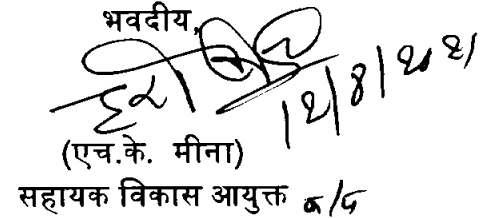 भवदीय,
12/8/2021
(एच.के. मीना)
सहायक विकास आयुक्त